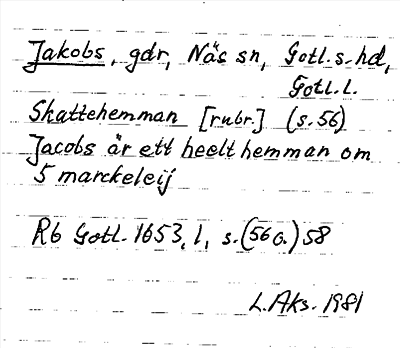 Jakobs, gdr, Näs sn, Gotl. s. hd,
Gotl. l.
Skattehemman [rubr.] (s. 56)
Jacobs är ett heelt hemman om
5 marckeleij
Rb Gotl. 1653, 1, s. (56 o.) 58
L. Aks. 1981